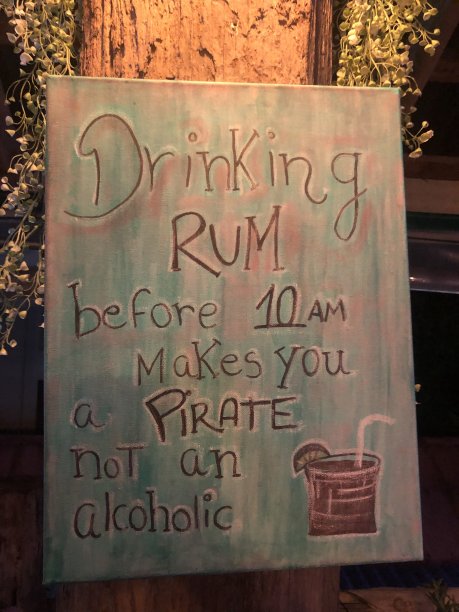 Drinking
RUM
before 10 AM
MaKes you
a PiRATE
noT an
alcoholic